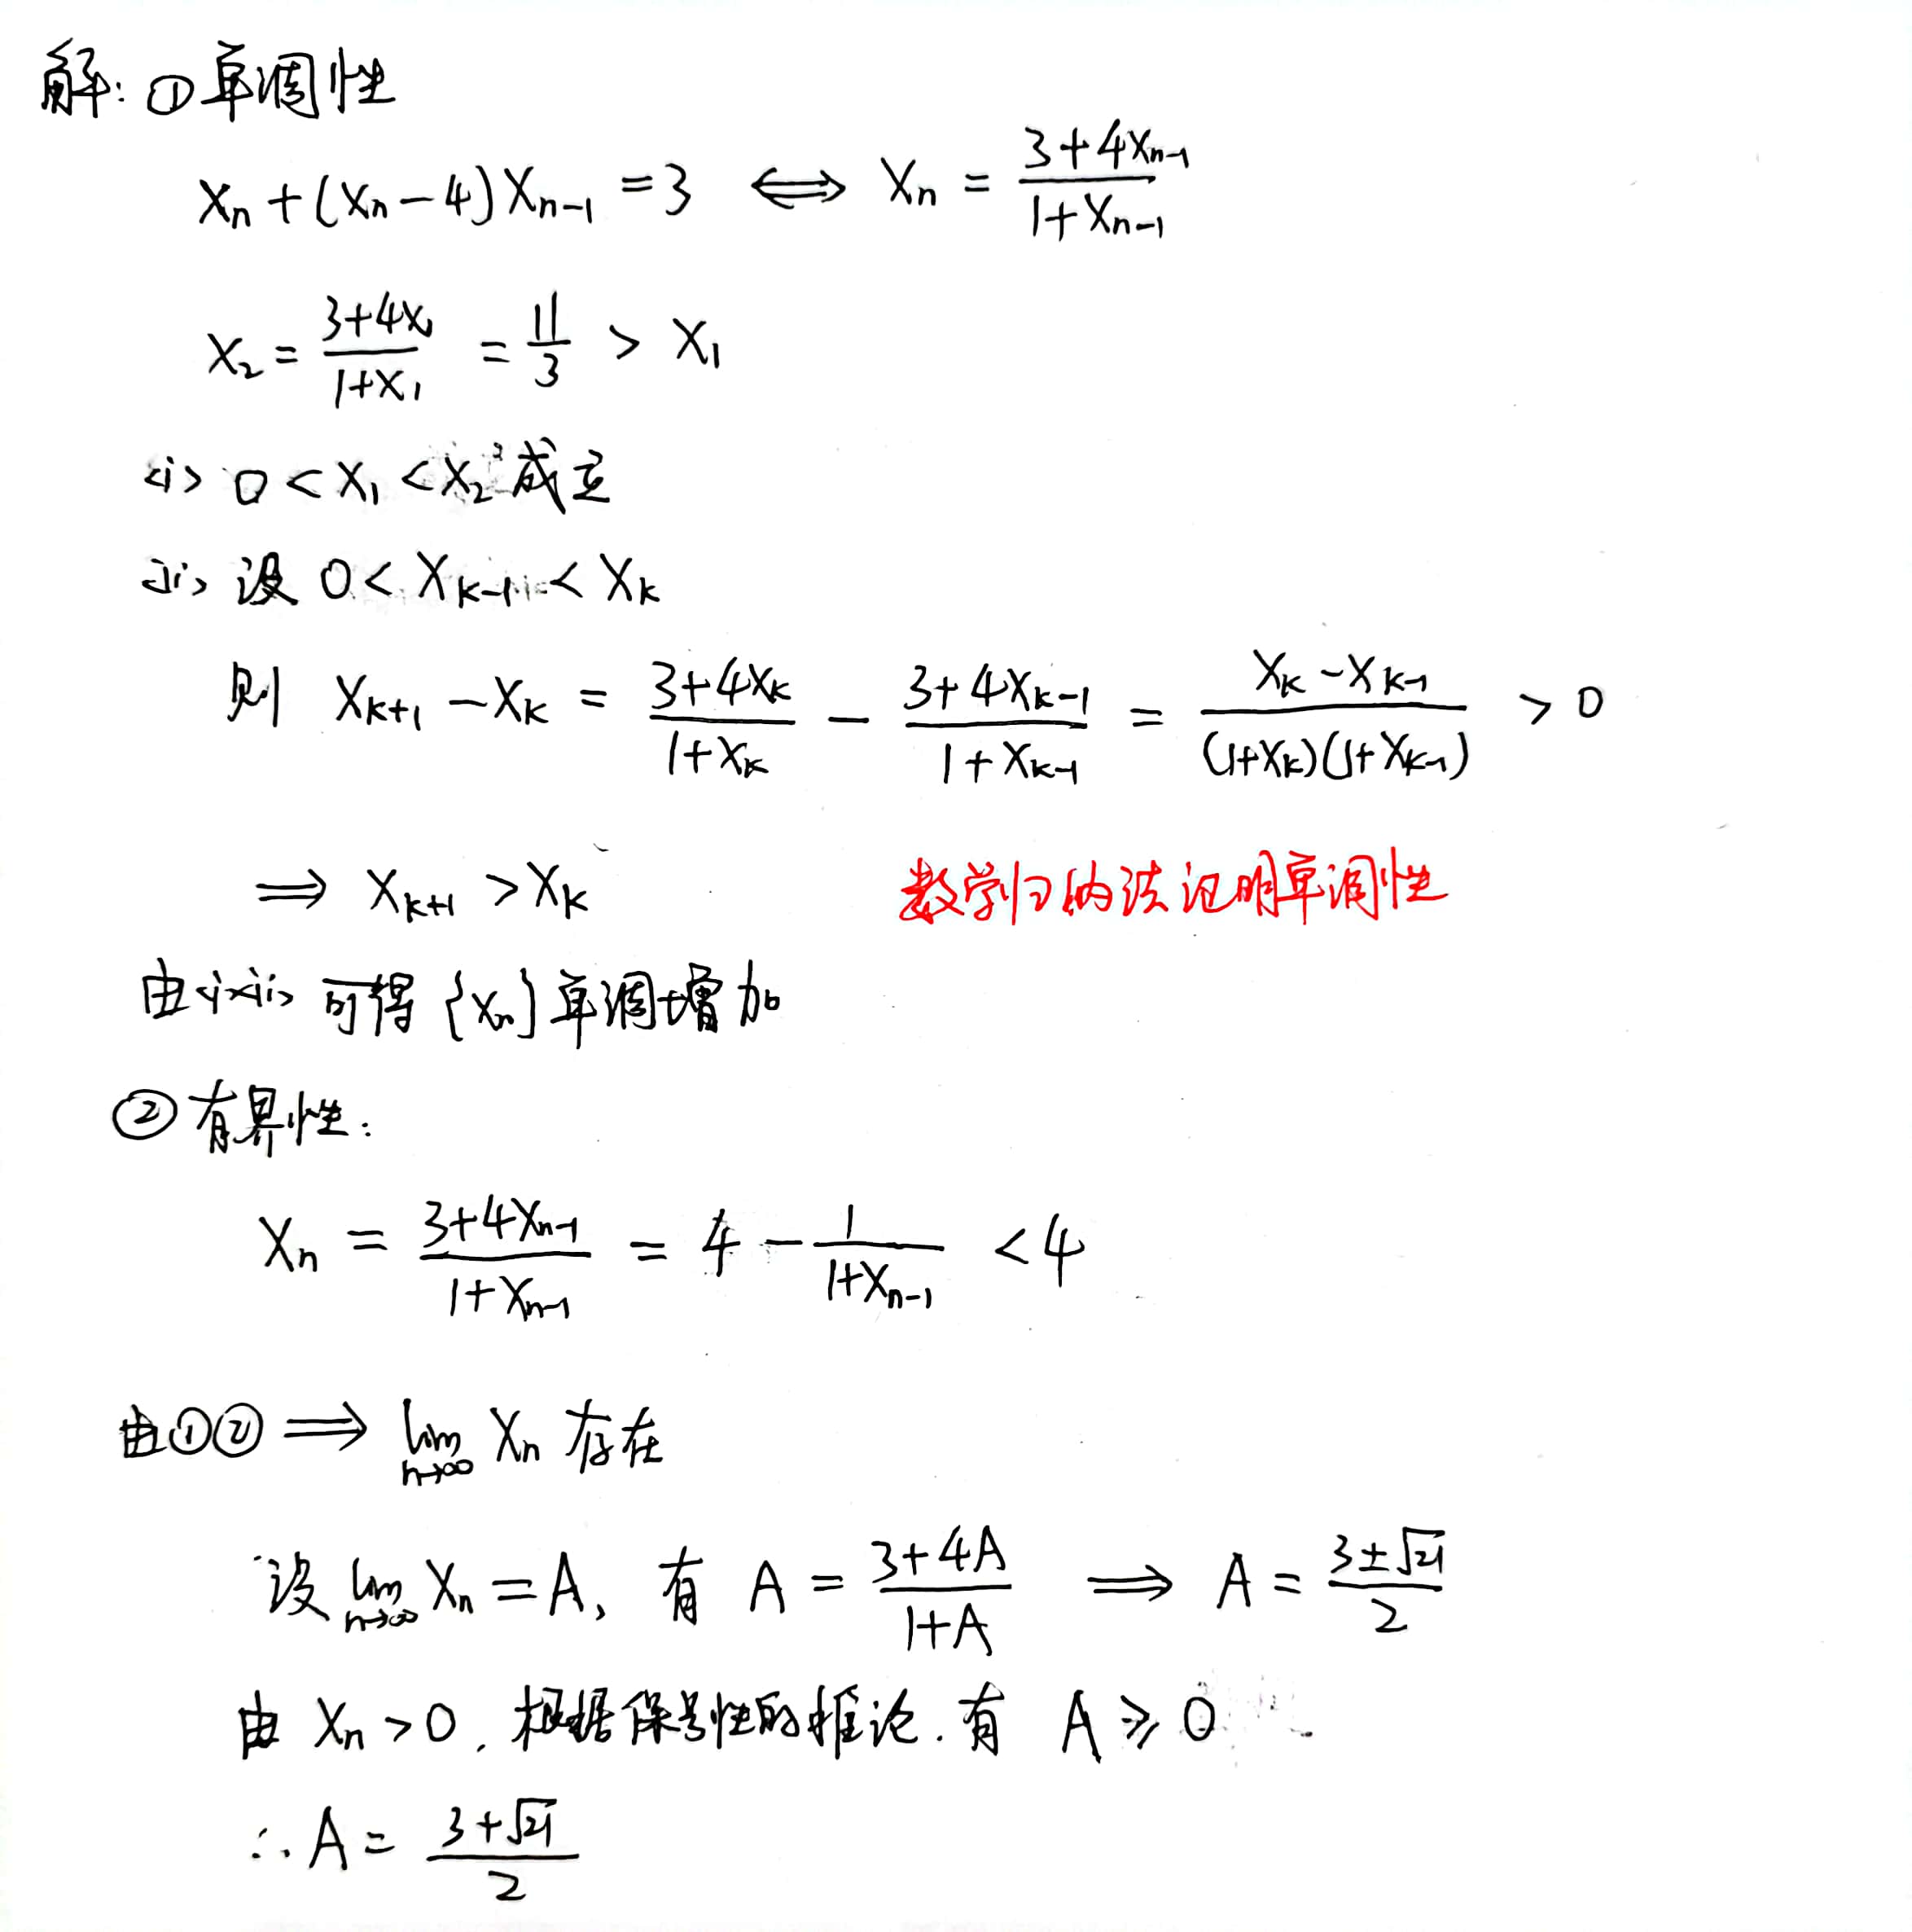 解: ①单调性
Xn + (Xn - 4)Xn-1 = 3 ⟺ Xn = (3+4Xn-1)/(1+Xn-1)
X2 = (3+4X1)/(1+X1) = 11/3 > X1
<i> 0 < X1 < X2 成立
<ii> 设 0 < Xk-1 < Xk
则 Xk+1 - Xk = (3+4Xk)/(1+Xk) - (3+4Xk-1)/(1+Xk-1) = (Xk - Xk-1)/((1+Xk)(1+Xk-1)) > 0
⟹ Xk+1 > Xk 数学归纳法证明单调性
由<i><ii> 可得 {Xn} 单调增加
② 有界性:
Xn = (3+4Xn-1)/(1+Xn-1) = 4 - 1/(1+Xn-1) < 4
由①② ⟹ lim n→∞ Xn 存在
设 lim n→∞ Xn = A, 有 A = (3+4A)/(1+A) ⟹ A = (3±√21)/2
由 Xn > 0, 根据保号性的推论. 有 A ⩾ 0
∴ A = (3+√21)/2